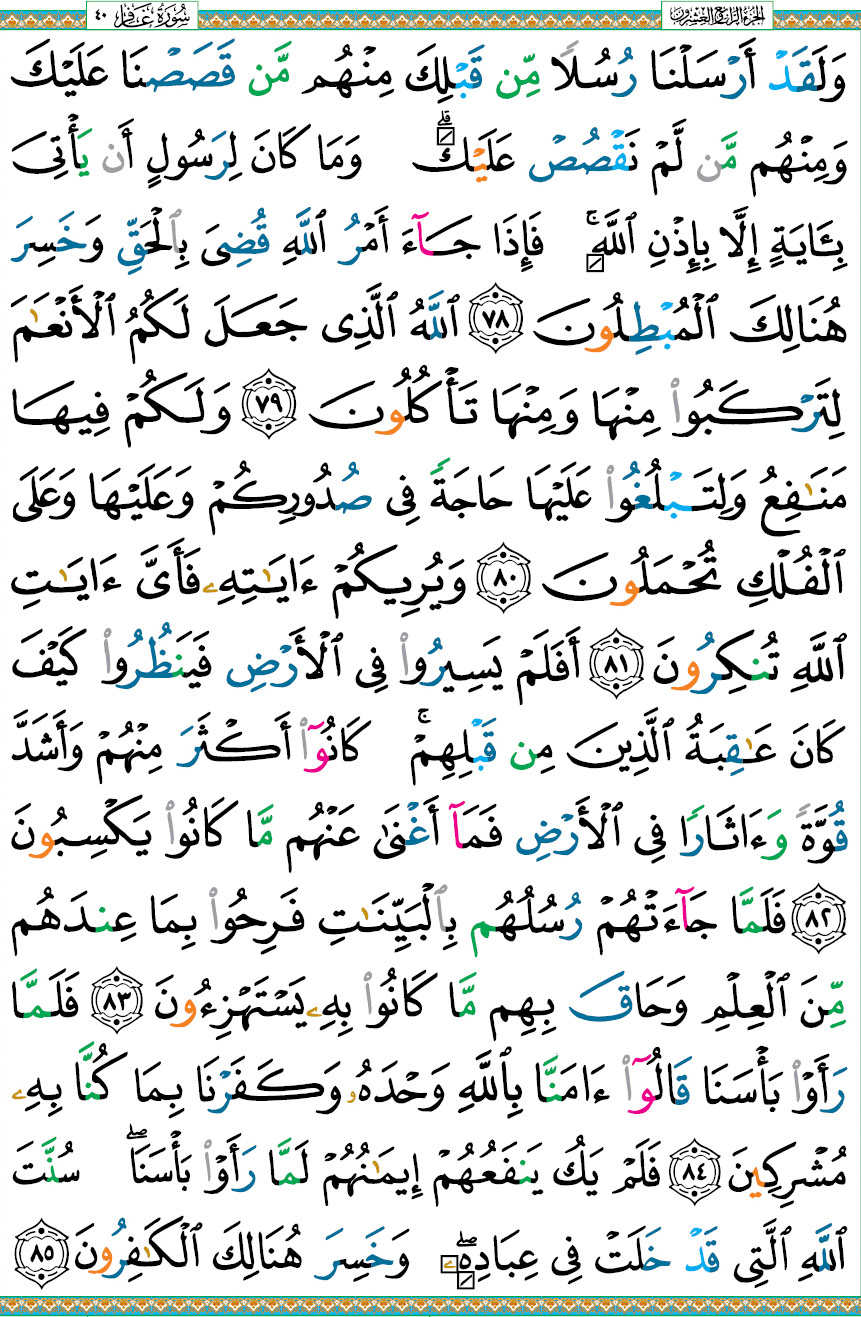 الجزء الرابع والعشرون سورة غافر ٤٠
وَلَقَدْ أَرْسَلْنَا رُسُلًا مِّن قَبْلِكَ مِنْهُم مَّن قَصَصْنَا عَلَيْكَ
وَمِنْهُم مَّن لَّمْ نَقْصُصْ عَلَيْكَ ۗ وَمَا كَانَ لِرَسُولٍ أَن يَأْتِىَ
بِـَٔايَةٍ إِلَّا بِإِذْنِ ٱللَّهِ ۚ فَإِذَا جَآءَ أَمْرُ ٱللَّهِ قُضِىَ بِٱلْحَقِّ وَخَسِرَ
هُنَالِكَ ٱلْمُبْطِلُونَ ٧٨ ٱللَّهُ ٱلَّذِى جَعَلَ لَكُمُ ٱلْأَنْعَـٰمَ
لِتَرْكَبُوا۟ مِنْهَا وَمِنْهَا تَأْكُلُونَ ٧٩ وَلَكُمْ فِيهَا
مَنَـٰفِعُ وَلِتَبْلُغُوا۟ عَلَيْهَا حَاجَةً فِى صُدُورِكُمْ وَعَلَيْهَا وَعَلَى
ٱلْفُلْكِ تُحْمَلُونَ ٨٠ وَيُرِيكُمْ ءَايَـٰتِهِۦ فَأَىَّ ءَايَـٰتِ
ٱللَّهِ تُنكِرُونَ ٨١ أَفَلَمْ يَسِيرُوا۟ فِى ٱلْأَرْضِ فَيَنظُرُوا۟ كَيْفَ
كَانَ عَـٰقِبَةُ ٱلَّذِينَ مِن قَبْلِهِمْ ۚ كَانُوٓا۟ أَكْثَرَ مِنْهُمْ وَأَشَدَّ
قُوَّةً وَءَاثَارًا فِى ٱلْأَرْضِ فَمَآ أَغْنَىٰ عَنْهُم مَّا كَانُوا۟ يَكْسِبُونَ
٨٢ فَلَمَّا جَآءَتْهُمْ رُسُلُهُم بِٱلْبَيِّنَـٰتِ فَرِحُوا۟ بِمَا عِندَهُم
مِّنَ ٱلْعِلْمِ وَحَاقَ بِهِم مَّا كَانُوا۟ بِهِۦ يَسْتَهْزِءُونَ ٨٣ فَلَمَّا
رَأَوْا۟ بَأْسَنَا قَالُوٓا۟ ءَامَنَّا بِٱللَّهِ وَحْدَهُۥ وَكَفَرْنَا بِمَا كُنَّا بِهِۦ
مُشْرِكِينَ ٨٤ فَلَمْ يَكُ يَنفَعُهُمْ إِيمَـٰنُهُمْ لَمَّا رَأَوْا۟ بَأْسَنَا ۖ سُنَّتَ
ٱللَّهِ ٱلَّتِى قَدْ خَلَتْ فِى عِبَادِهِۦ ۖ وَخَسِرَ هُنَالِكَ ٱلْكَـٰفِرُونَ ٨٥